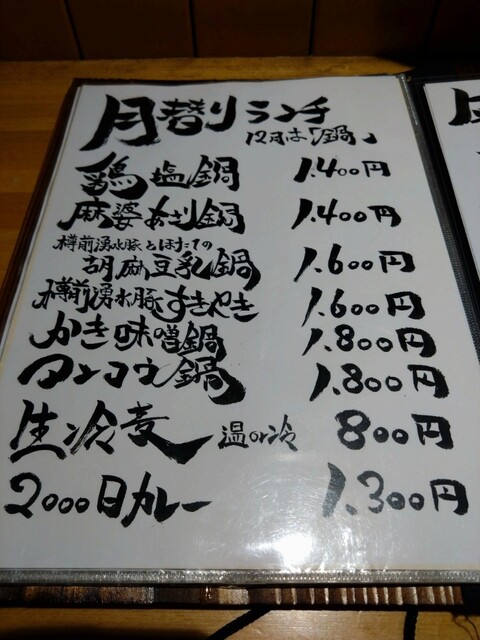 月替りランチ
12月は「鍋」
鶏塩鍋 1.400円
麻婆あさり鍋 1.400円
樽前湧水豚とほたての
胡麻豆乳鍋 1.600円
樽前湧水豚すきやき 1.600円
かき味噌鍋 1.800円
アンコウ鍋 1.800円
生冷麦 温or冷 800円
2000日カレー 1.300円